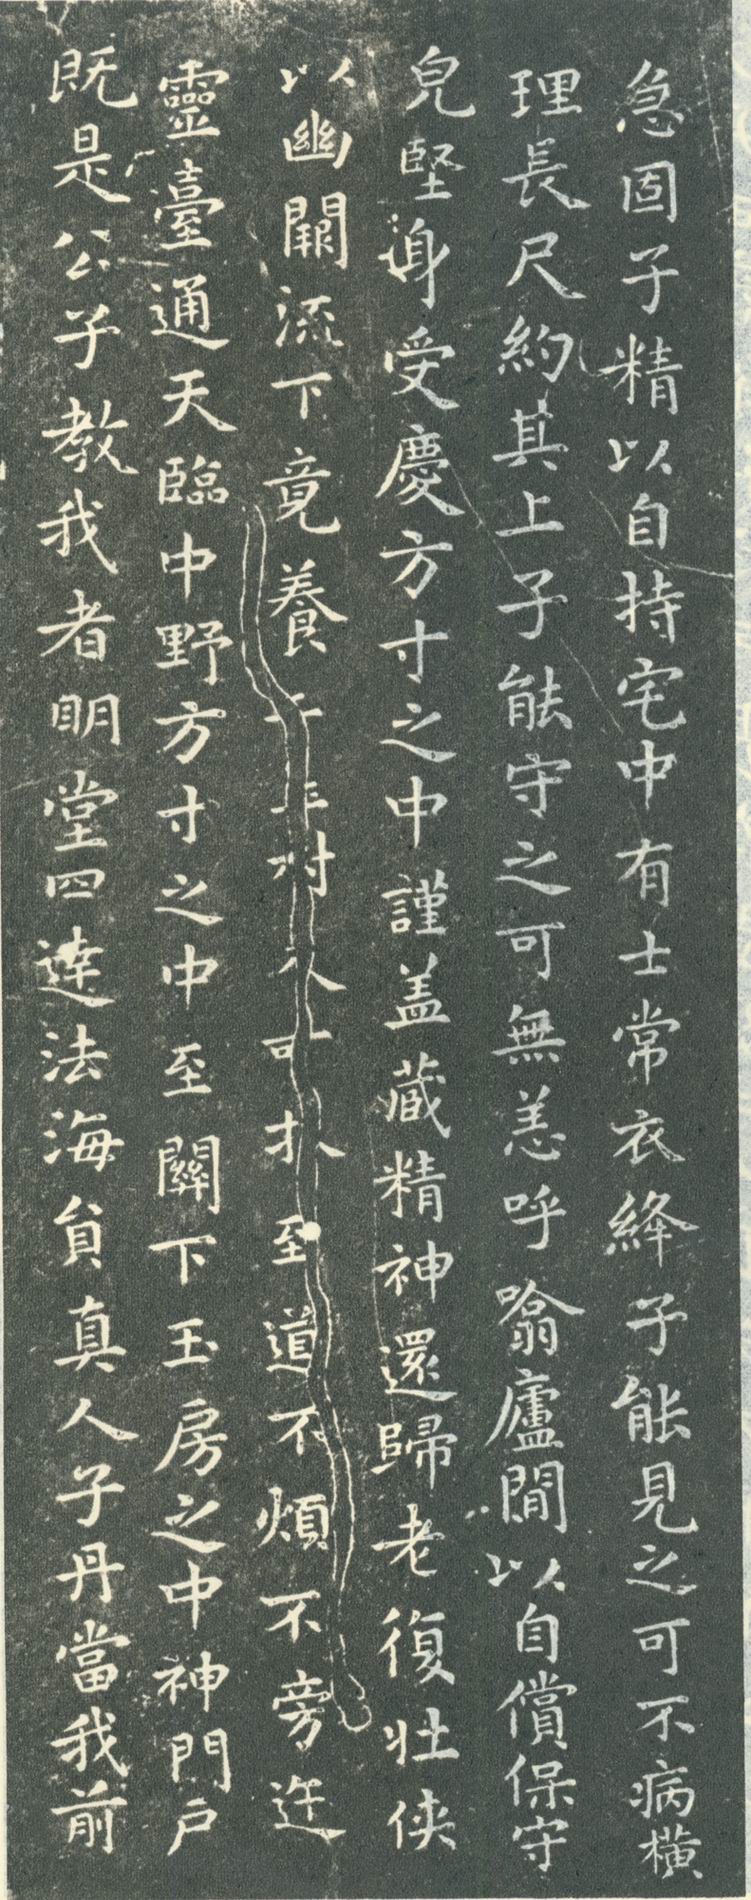 急固子精以自持宅中有士常衣絳子能見之可不病橫
理長尺約其上子能守之可無恙呼噏廬間以自償保守
皃堅身受慶方寸之中謹盖藏精神還歸老復壯俠
以幽闕流下竟養子玉樹令可杖至道不煩不旁迕
靈臺通天臨中野方寸之中至關下玉房之中神門戶
既是公子教我者明堂四達法海員真人子丹當我前